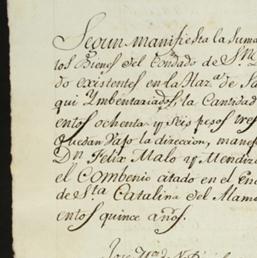 Segun manifiesta la Suma
tos Bienes del Condado de Sn.
do existentes en la Haz.a de
qui Ymbentariados, la Cantidad
entos ochenta y seis pesos tres
Quedan vajo la direccion, manej
Dn Felix Malo y Mendi
el Combenio citado en el
de Sta Catalina del Alamo
entos quince años.